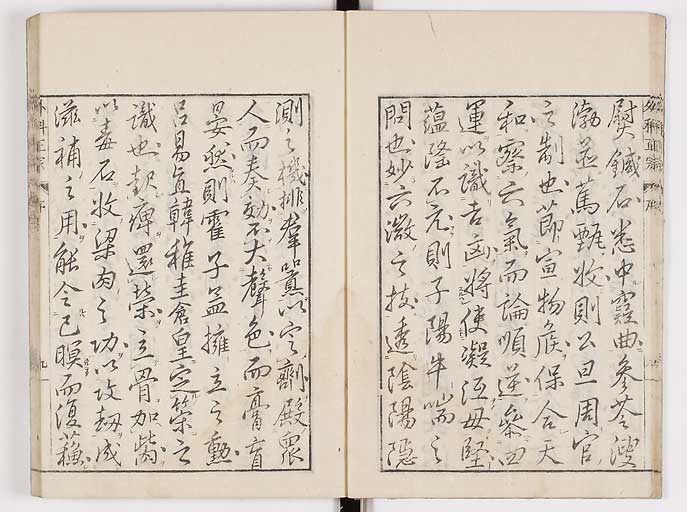 熨鍼石悉中竅曲參苓溲
渤並蔦甄收則公旦周官
之制也節宣物候保合天
和察六氣而論順逆參四
運以識吉凶將使凝沍毋堅
蘊隆不亢則子陽牛喘之
問也妙六微之技透陰陽隱
測之機排羣囂以定劑殿衆
人而奏効不大聲色而膏肓
晏然則霍子孟擁立之勳
呂易直韓稚圭倉皇定策之
識也起痺還榮立骨加齒
以毒石收梁肉之功以攻劫成
滋補之用能令已瞑而復蘇
外科正宗 序
外科正宗 序 九